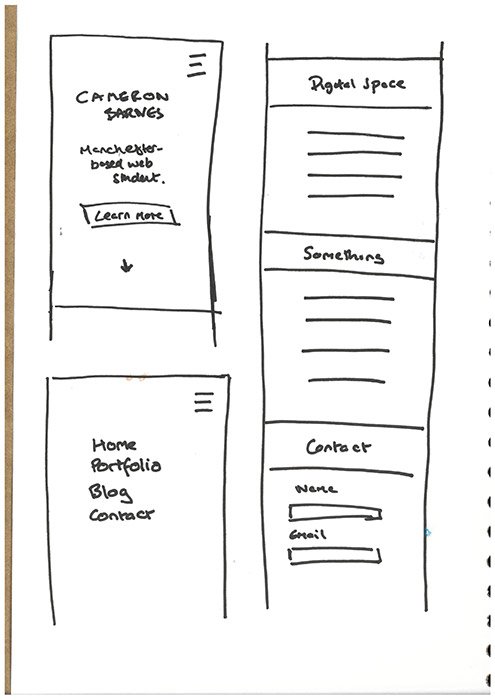 CAMERON
BARNES
Manchester-
based web
Student.
Learn More
Home
Portfolio
Blog
Contact
Digital Space
Something
Contact
Name
Email